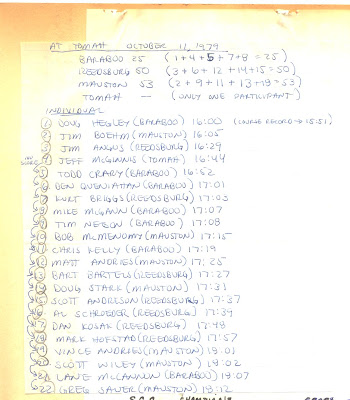 AT TOMAH OCTOBER 11, 1979
BARABOO 25 (1+4+5+7+8=25)
REEDSBURG 50 (3+6+12+14+15=50)
MAUSTON 53 (2+9+11+13+18=53)
TOMAH — (ONLY ONE PARTICIPANT)
INDIVIDUAL
1 DOUG HEGLEY (BARABOO) 16:00 (COURSE RECORD → 15:51)
2 TIM BOEHM (MAUSTON) 16:05
3 JIM ANGUS (REEDSBURG) 16:29
4 JEFF McGINNIS (TOMAH) 16:44
5 TODD CRARY (BARABOO) 16:52
6 BEN (BARABOO) 17:01
7 KURT BRIGGS (REEDSBURG) 17:03
8 MIKE McGANN (BARABOO) 17:07
9 TIM NELSON (BARABOO) 17:08
10 BOB McMENOMY (MAUSTON) 17:15
11 CHRIS KELLY (BARABOO) 17:19
12 MATT ANDRIES (MAUSTON) 17:25
13 BART BARTELS (REEDSBURG) 17:27
14 DOUG STARK (MAUSTON) 17:31
15 SCOTT ANDERSON (REEDSBURG) 17:37
16 AL SCHROEDER (REEDSBURG) 17:39
17 DAN KOSAK (REEDSBURG) 17:48
18 MARK HOFSTAD (REEDSBURG) 17:57
19 VINCE ANDRIES (MAUSTON) 18:01
20 SCOTT WILEY (MAUSTON) 18:02
21 LANE McCANNON (BARABOO) 18:07
22 GREG SAUER (MAUSTON) 18:12